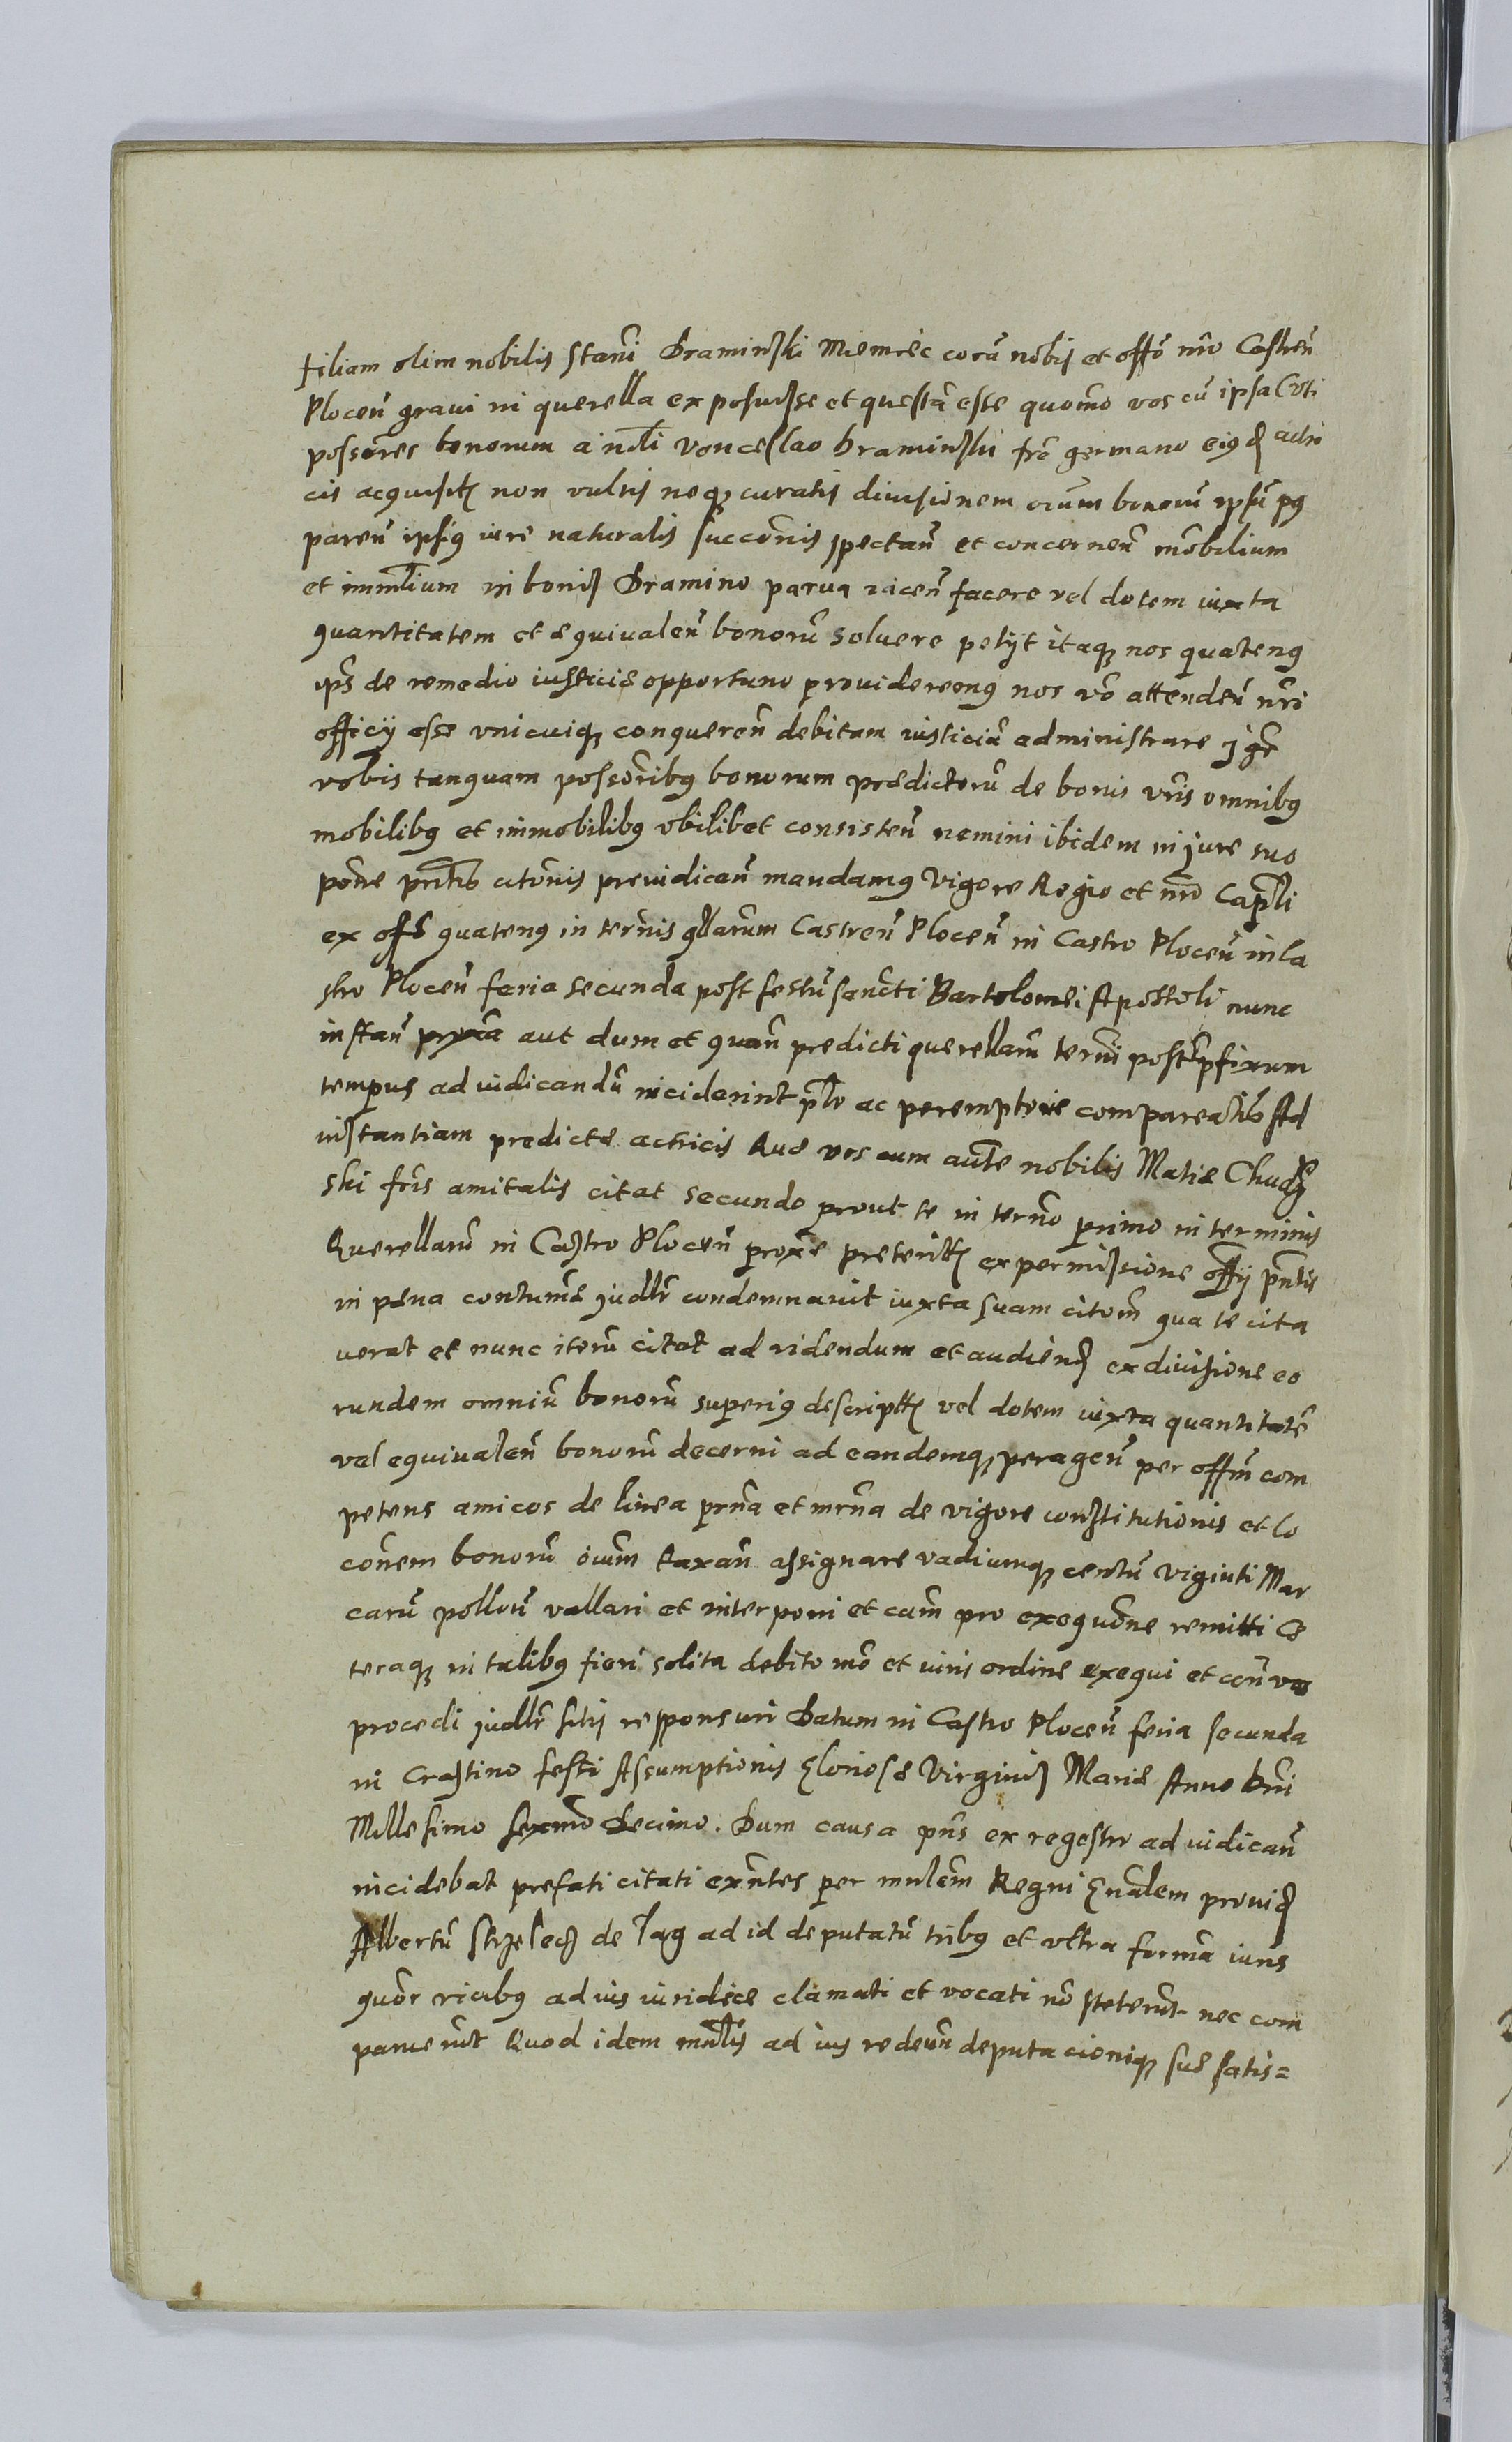 filiam olim nobilis Stani Draminski Miemiec corā nobis et offō nrō Castreñ
Ploceñ graui in querella exposuisse et questā esse quomo vos cū ipsa Vti
possores bonorum a nobli Vonceslao Draminski frē germano eiusd actri
cis acquisitꝭ non vultis neqꝫ curatis diuisionem oīum bonorū ipsū pꝰ
pareñ ipsiꝰ iure naturalis succonis spectañ et concerneñ mobilium
et immlium in bonis Dramino parua iaceñ facere vel dotem iuxta
quantitatem et equiualeñ bonorū soluere petyt itaqꝫ nos quatenꝰ
ips de remedio iusticie opportuno prouideremꝰ nos vō attendeñ nri
officij esse vnicuiqꝫ conquereñ debitam iusticiā administrare igr
vobis tanquam possoribꝰ bonorum predictorū de bonis vris omnibꝰ
mobilibꝰ et immobilibꝰ vbilibet consisteñ nemini ibidem in jure suo
pōne pntis citonis preiudicañ mandamꝰ vigore Regio et nrō Capli
ex offō quatenꝰ in termis qllarum Castreñ Ploceñ in Castro Ploceñ in Ca
stro Ploceñ feria secunda post festū sancti Bartolomei Apostoli nunc
instañ proxīa aut dum et quañ predicti querellarū termi post pfixum
tempus ad iudicandū inciderint plr ac peremptorie compareatis Ad
instantiam predicte actricis Que vos cum aute nobilis Matie Chudzÿ
ski frīs amitalis citat secundo prout te in termo primo in terminis
Querellarū in Castro Ploceñ proxe preteritꝭ ex permissione offij pntis
in pena contume judlr condemnauit iuxta suam citom qua te cita
uerat et nunc iterū citat ad videndum et audiend ex diuisione eo
rundem omniū bonorū superiꝰ descriptꝭ vel dotem iuxta quantitatē
vel equiualeñ bonorū decerni ad eandemqꝫ perageñ per offm com
petens amicos de linea prna et mrna de vigore constitutionis et lo
conem bonorū oium taxañ assignare vadiumqꝫ centū viginti Mar
carū polloñ vallari et interponi et cām pro exequōne remitti Ce
teraqꝫ in talibꝰ fieri solita debito mō et iuris ordine exequi et coñ vos
procedi judlr sitis responsuri Datum in Castro Ploceñ feria secunda
in Crastino festi Assumptionis Gloriose Virginis Marie Anno Dni
Millesimo Sexmo Decimo. Dum causa pns ex regestro ad iudicañ
incidebat prefati citati exntes per mnlem Regni Gnalem prouid
Albertū Strzelecz de Łag ad id deputatū tribꝰ et vltra formā iuris
quōr vicibꝰ ad ius iuridice clamati et vocati nō steterūt nec com
paruerūt Quod idem mnlis ad ius redeuñ deputacioniqꝫ sue satis=